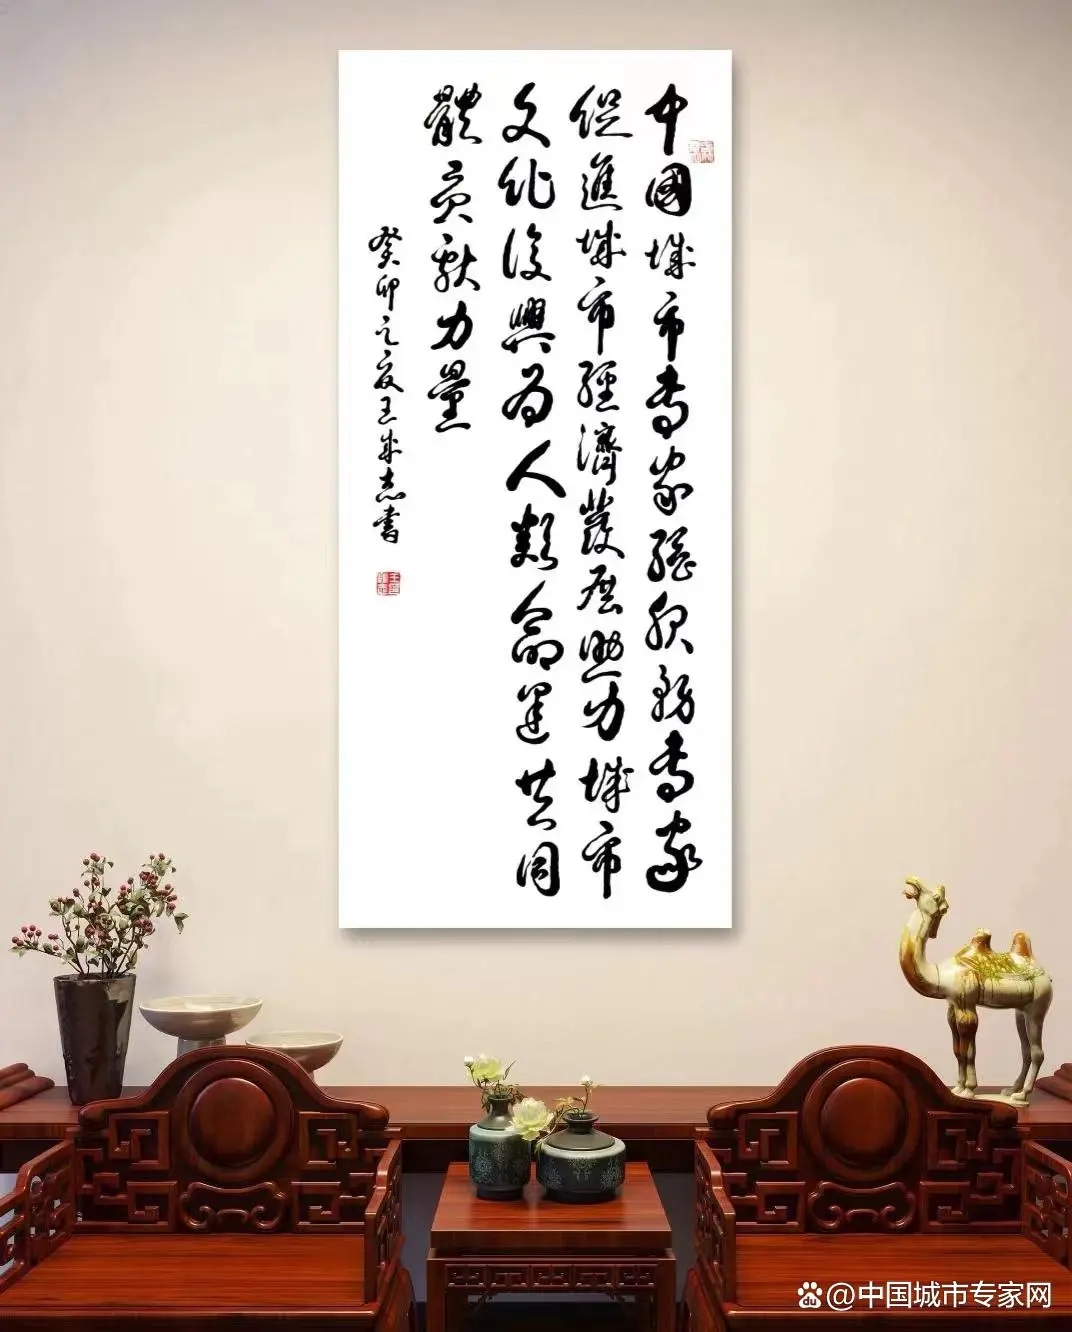 中國城市專家網服務專家
促進城市經濟發展助力城市
文化復興為人類命運共同
體貢獻力量
癸卯之夏王成志書
du @中国城市专家网